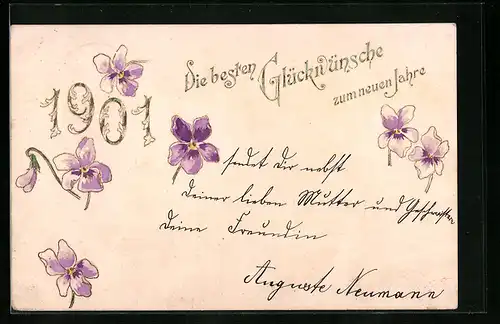 1901
Die besten Glückwünsche
zum neuen Jahre
sendet Dir nebst
Deiner lieben Mutter und Geschwistern
Deine Freundin
Auguste Neumann